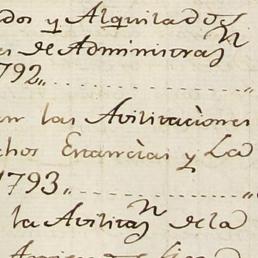 dos y Alquilados
es de Administraⁿ
1792 „
an las Avilitaciones
chos Estancias y La
1793 „
la Avilitaⁿ de la